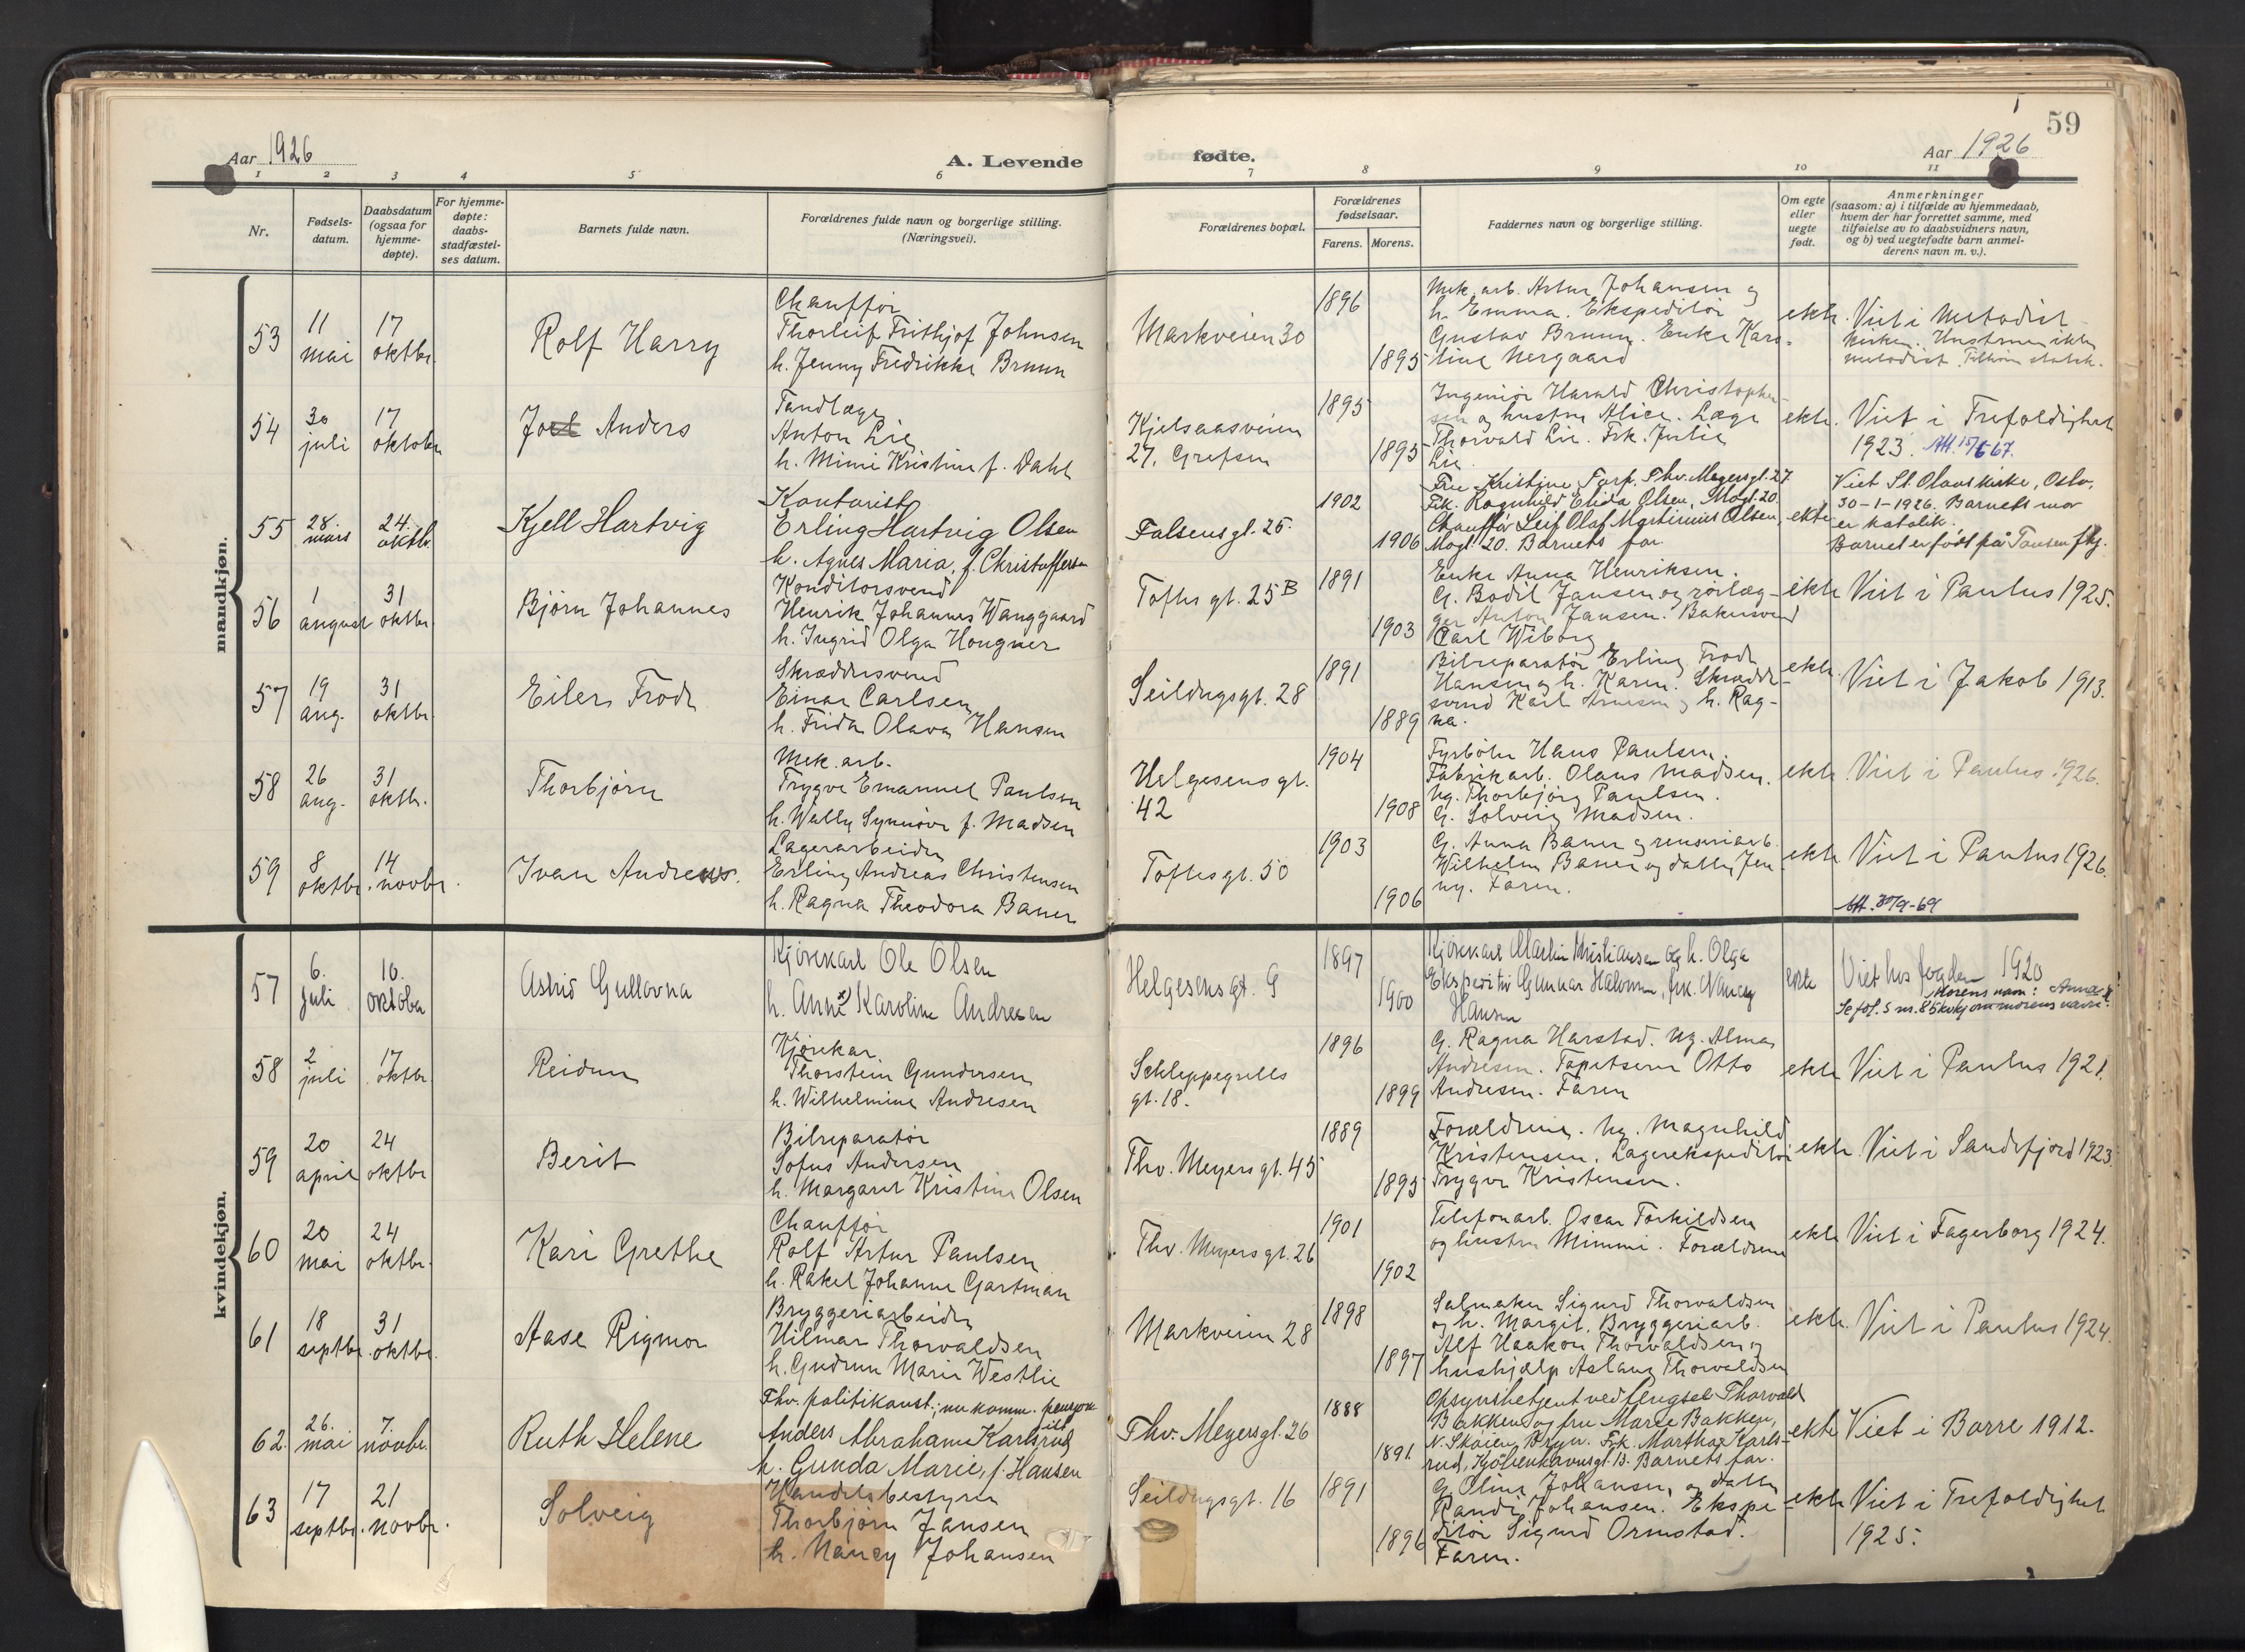 59
Aar 1926
A. Levende
fødte.
Aar 1926
1 2 3 4 5 6 7 8 9 10 11
Nr.
Fødsels-
datum.
Daabsdatum
(ogsaa for
hjemme-
døpte).
For hjemme-
døpte:
daabs-
stadfæstel-
ses datum.
Barnets fulde navn.
Forældrenes fulde navn og borgerlige stilling.
(Næringsvei).
Forældrenes bopæl.
Forældrenes
fødselsaar.
Farens. Morens.
Faddernes navn og borgerlige stilling.
Om egte
eller
uegte
født.
Anmerkninger
(saasom: a) i tilfælde av hjemmedaab,
hvem der har forrettet samme, med
tilføielse av to daabsvidners navn,
og b) ved uegtefødte barn anmel-
derens navn m. v.).
mandkjøn.
53
11
mai
17
oktbr.
Rolf Harry
Chauffør
Thorleif Frithjof Johnsen
h. Jenny Fredrikke Bruun
Markveien 30
1896
1895
Mek. arb. Artur Johansen og
h. Emma. Ekspeditør
Gustav Bruun. Enke Karo-
line Nergaard
ekte.
Viet i Metodist-
kirken. Hustruen ikke
metodist. Tilhører statsk.
54
30
juli
17
oktober
Joel Anders
Tandlæge
Anton Lie
h. Mimi Kristine f. Dahl
Kjelsaasveien
27, Grefsen
1895
1895
Ingeniør Harald Christopher-
sen og hustru Alice. Læge
Thorvald Lie. Frk. Julie
Lie.
ekte.
Viet i Trefoldighet
1923. Att. 15/6 67.
55
28.
mars
24.
oktbr.
Kjell Hartvig
Kontorist
Erling Hartvig Olsen
h. Agnes Maria, f. Christoffersen
Falsensgt. 25.
1902
1906
Fru Kristine Torp. Thv. Meyersgt. 27
Frk. Ragnhild Elida Olsen, Mogt. 20.
Chauffør Leif Olaf Martinius Olsen,
Mogt. 20. Barnets far
ekte
Viet St. Olavs kirke, Oslo,
30-1-1926. Barnets mor
er katolik.
Barnet er født på Tøusen fkj.
56
1
august
31
oktbr.
Bjørn Johannes
Konditorsvend
Henrik Johannes Wanggaard
h. Ingrid Olga Hougner
Toftes gt. 25 B
1891
1903
Enke Anna Henriksen.
G. Bodil Jansen og rørlæg-
ger Anton Jansen. Bakersvend
Carl Wiborg
ekte
Viet i Paulus 1925.
57
19
aug.
31
oktbr.
Eilers Frode
Skræddersvend
Einar Carlsen
h. Frida Olava Hansen
Seildugsgt. 28
1891
1889
Bilreparatør Erling Frode
Hansen og h. Karen. Skrædder-
svend Karl Arnesen og h. Rag-
na.
ekte.
Viet i Jakob 1913.
58
26
aug.
31
oktbr.
Thorbjørn
Mek. arb.
Trygve Emanuel Paulsen
h. Wally Synnøve f. Madsen
Helgesens gt.
42
1904
1908
Fyrbøter Hans Paulsen.
Fabrikarb. Olaus Madsen.
Ug. Thorbjørg Paulsen.
G. Solveig Madsen.
ekte
Viet i Paulus 1926.
59
8
oktbr.
14
novbr.
Ivan Andreas.
Lagerarbeider
Erling Andreas Christensen
h. Ragna Theodora Bauer
Toftesgt. 50
1903
1906
G. Anna Bauer og renseriarb.
Wilhelm Bauer og datter Jen
ny. Faren.
ekte
Viet i Paulus 1926.
Att. 30/9-69
kvindekjøn.
57
6.
juli
10.
oktober
Astrid Gullovna
Kjørekarl Ole Olsen
h. Anne x) Karoline Andresen
Helgesens gt. 9
1897
1900
Kjørekarl Martin Kristiansen og h. Olga
Ekspeditør Gunnar Halvorsen, frk. Nancy
Hansen
ekte
Viet hos fogden 1920
Morens navn: Anna
Se fol. 5 nr. 85 kvkj om morens navn.
58
2
juli
17
oktbr
Reidun
Kjørekar
Thorstein Gundersen
h. Wilhelmine Andresen
Schleppegrells
gt. 18.
1896
1899
G. Ragna Harstad. Ug. Alma
Andresen. Tapetserer Otto
Andresen. Faren
ekte
Viet i Paulus 1921.
59
20
april
24
oktbr
Berit
Bilreparatør
Sofus Andersen
h. Margaret Kristine Olsen
Thv. Meyers gt. 45
1889
1895
Forældrene. Ug. Magnhild
Kristensen. Lagerekspeditør
Trygve Kristensen.
ekte.
Viet i Sandefjord 1923.
60
20
mai
24
oktbr.
Kari Grethe
Chauffør
Rolf Artur Paulsen
h. Rakel Johanne Gartman
Thv. Meyers gt. 26
1901
1902
Telefonarb. Oscar Torkildsen
og hustru Mimmi. Forældrene
ekte
Viet i Fagerborg 1924.
61
18
septbr.
31
oktbr.
Aase Rigmor
Bryggeriarbeider
Hilmar Thorvaldsen
h. Gudrun Marie Westlie
Markveien 28
1898
1897
Salmaker Sigurd Thorvaldsen
og h. Margit. Bryggeriarb.
Alf Haakon Thorvaldsen og
hushjælp Aslaug Thorvaldsen
ekte.
Viet i Paulus 1924.
62.
26.
mai
7.
novbr.
Ruth Helene
Fhv. politikonst.; nu komm. pensjon
Anders Abraham Karlsrud
h. Gunda Marie, f. Hansen
Thv. Meyersgt. 26
1888
1891.
Opsynsbetjent ved fengslet Thorvald
Bakken og fru Marie Bakken,
N. Skøien, Bryn. Frk. Martha Karls-
rud, Kjøbenhavnsgt. 13. Barnets far.
ekte
Viet i Borre 1912.
63
17
septbr.
21
novbr.
Solveig
Handelsbestyrer
Thorbjørn Jansen
h. Nancy Johansen
Seildugsgt. 16
1891
1896
G. Oline Johansen, og datter
Randi Johansen. Ekspe-
ditør Sigurd Ormstad.
Faren.
ekte
Viet i Trefoldighet
1925.